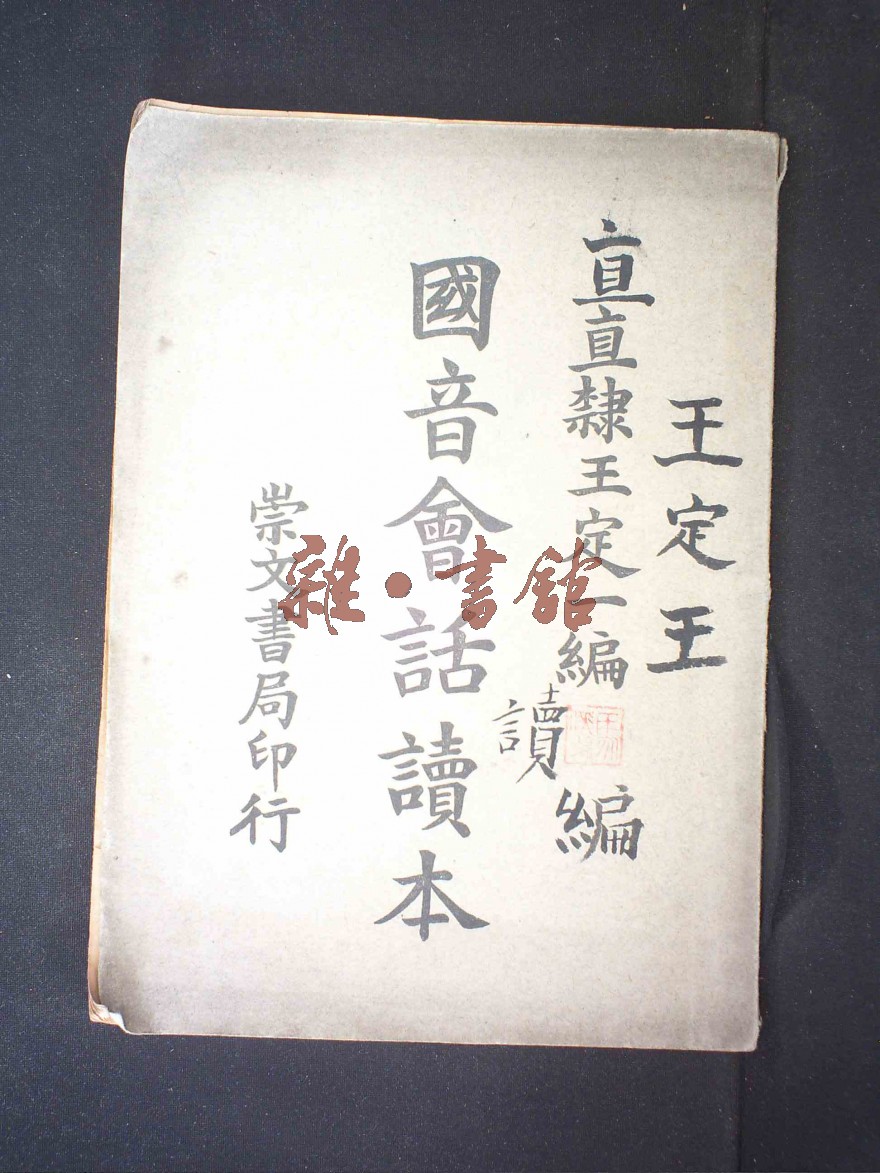 王定王
直直隸王定一編
編
讀
國音會話讀本
崇文書局印行
雜·書館